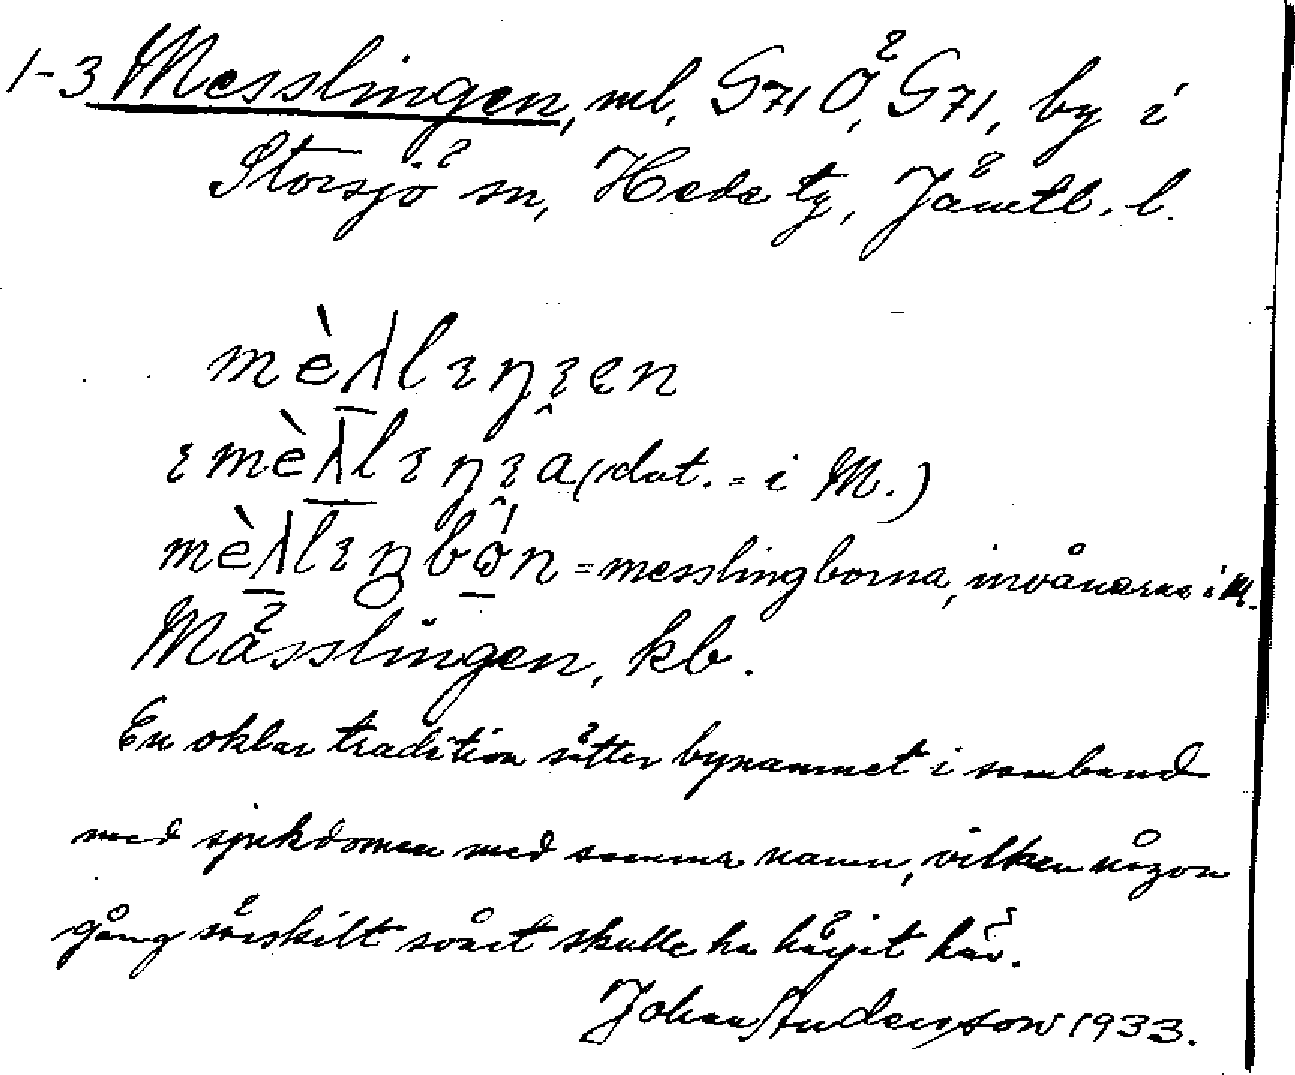 1-3 Messlingen, ml. G71 Ö, G71, by i
Storsjö sn, Hede tg, Jämtl. l.
mèʌlıŋɛn
ı mèʌlıŋa (dat. = i M.)
mèʌlıŋbǫ́n = messlingborna, invånarne i M.
Mässlingen, kb.
En oklar tradition sätter bynamnet i samband
med sjukdomen med samma namn, vilken någon
gång särskilt svårt skulle ha härjat här.
Johan Andersson 1933.